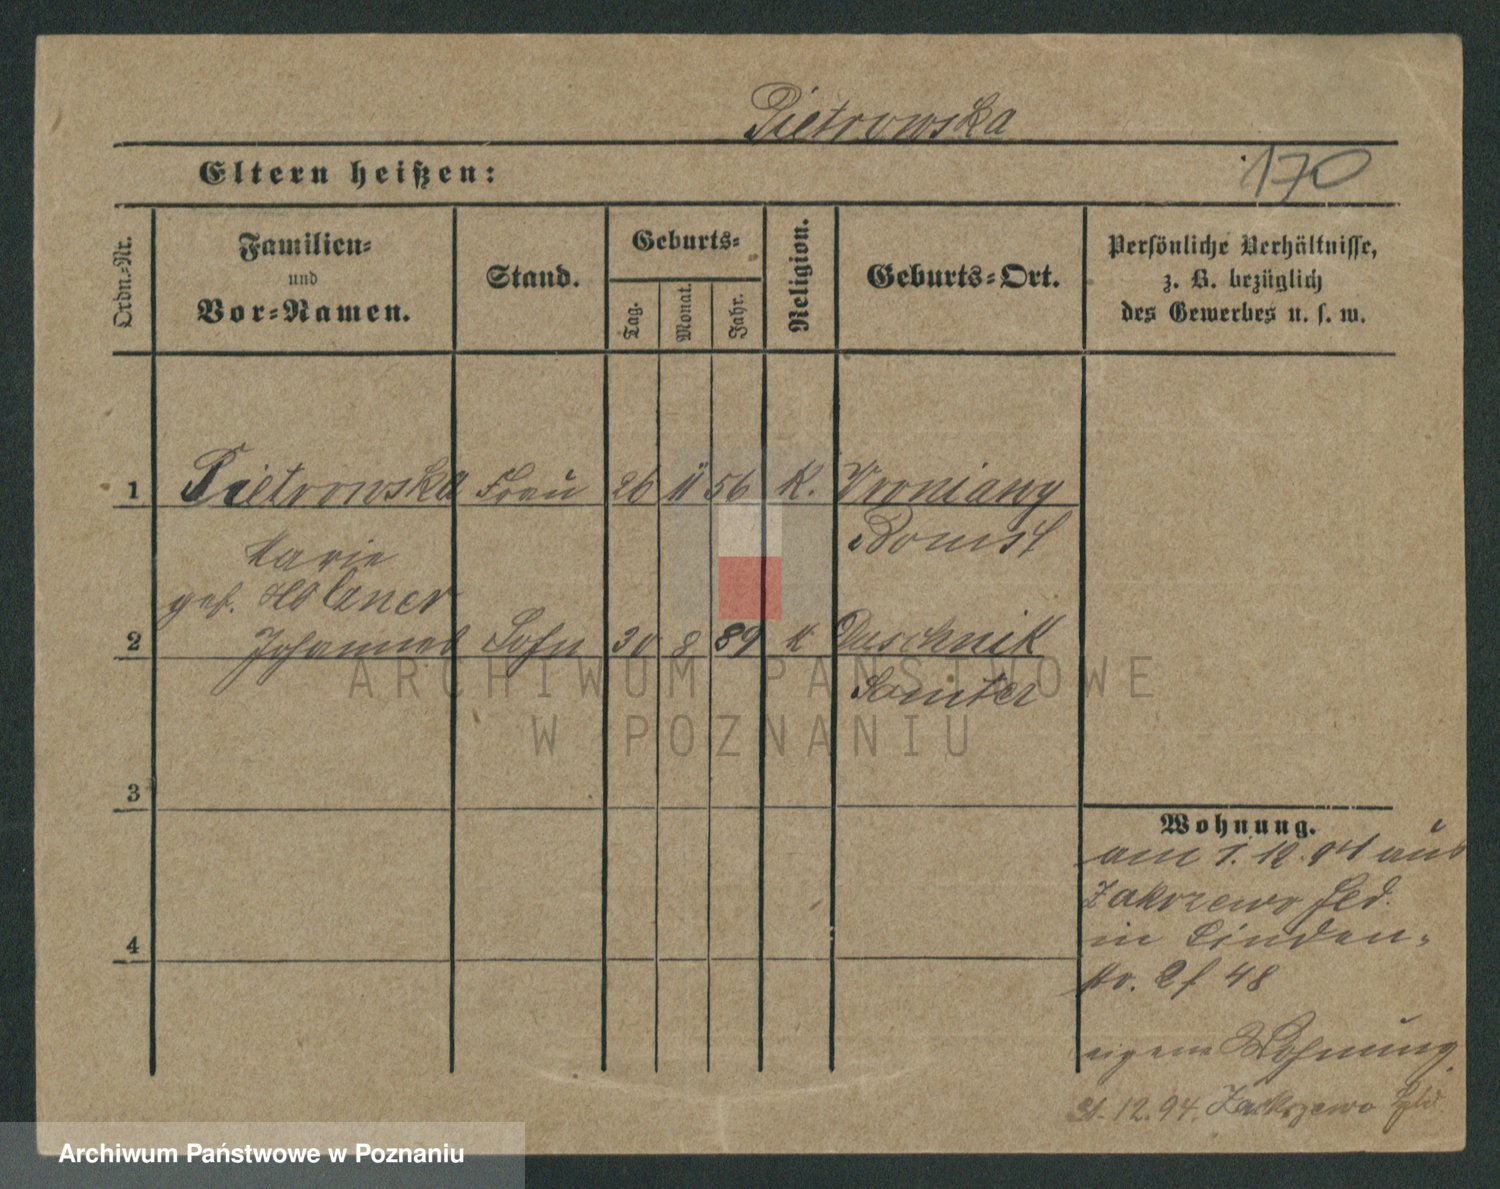 Pietrowska
Eltern heißen:
170
Ordn.=Nr.
Familien=
und
Vor=Namen.
Stand.
Geburts=
Tag.
Monat.
Jahr.
Religion.
Geburts=Ort.
Persönliche Verhältnisse,
z. B. bezüglich
des Gewerbes u. s. w.
1 Pietrowska Frau 26 11 56 K. Wroniawy
Bomst
Marie
geb.
2 Johannes Sohn 30 8 89 K Duschnik
Samter
3
4
Wohnung.
am 1. 12. 94 aus
Zakrzewo
in Linden=
str. 48
eigene Wohnung.
31. 12. 94. Zakrzewo
ARCHIWUM PAŃSTWOWE
W POZNANIU
Archiwum Państwowe w Poznaniu